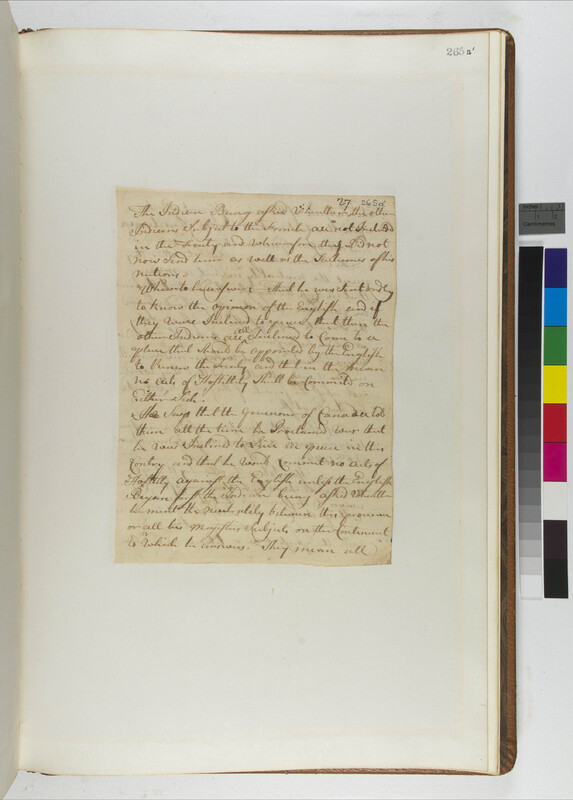 265a'
27 265a
The Indien Being asked Whether the other
Indiens Subject to the French are not Included
in the Treaty and Wherefore they Did not
now Send him as well as the Indiens of his
nation.
Whereto he answers That he was Sent only
to know the opinion of the English and if
they were Inclined to peace, that then the
other Indiens are all Inclined to Come to a
place that Should be appointed by the English
to Renew the Treaty and that in the mean
no acts of Hostillity Shall be Commited on
Either Side.
He Says that the Governour of Canada told
them all the time he Proclaimed War that
he was Inclined to Live in peace in this
Contry and that he would Commit no acts of
Hostillity against the English unless the English
Begun first the Indien being asked Whether
he ment the Neutrality between this province
or all his Majesties Subjects on the Continent
to Which he answers. They mean all